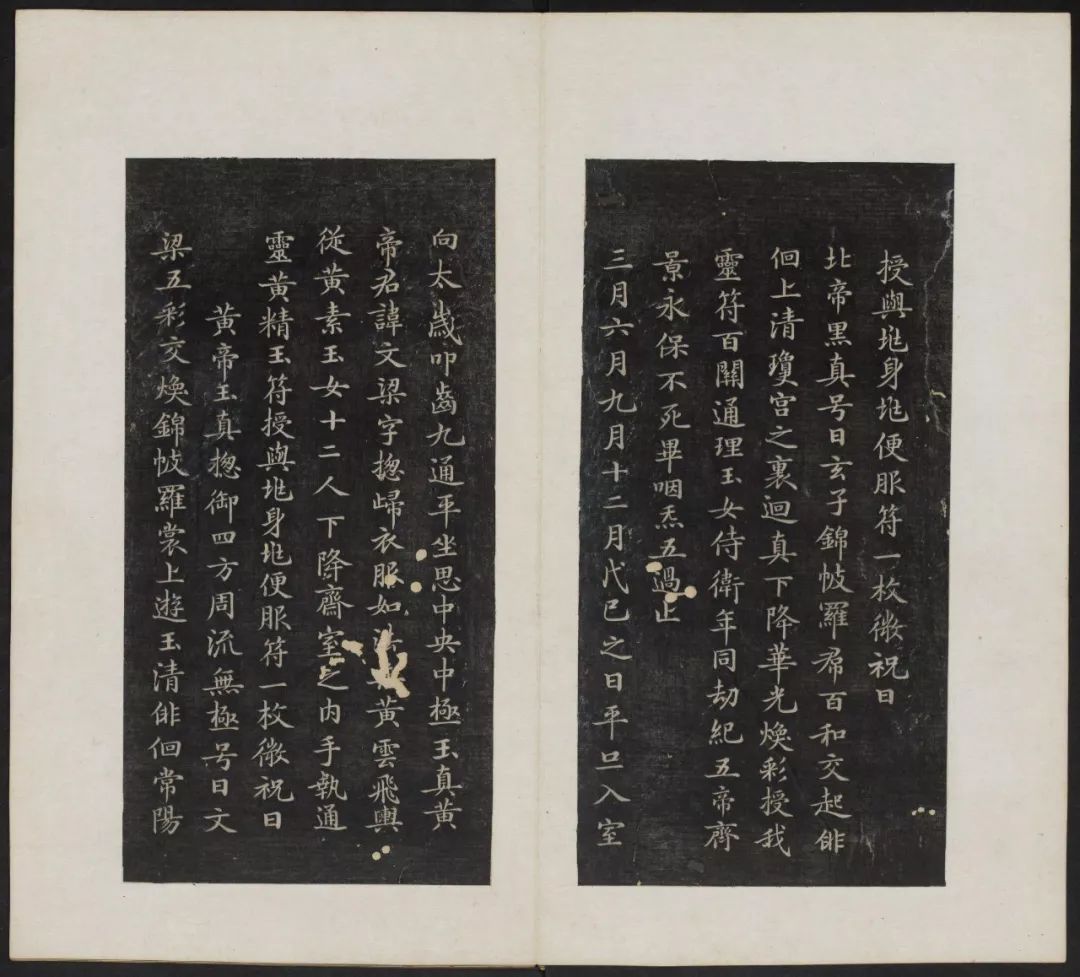 授與兆身兆便服符一枚微祝曰
北帝黑真号曰玄子錦帔羅帬百和交起俳
佪上清瓊宮之裏迴真下降華光煥彩授我
靈符百關通理玉女侍衛年同劫紀五帝齊
景永保不死畢咽炁五過止
三月六月九月十二月戊巳之日平旦入室
向太歲叩齒九通平坐思中央中極玉真黃
帝君諱文梁字揔歸衣服如法黃雲飛輿
從黃素玉女十二人下降齋室之內手執通
靈黃精玉符授與兆身兆便服符一枚微祝曰
黃帝玉真揔御四方周流無極号曰文
梁五彩交煥錦帔羅裳上遊玉清俳佪常陽